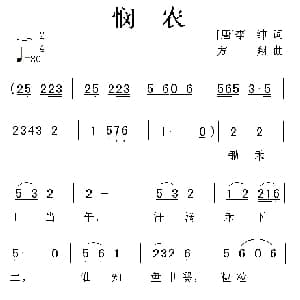 悯 农
[唐]李 绅 词
方 翔 曲
2
4
(25 223 25 223 5 60 6 565 3·5
2343 2 1 576 1· 0) 2 2
锄 禾
53 2 2 - 53 2 12 216
日 当 午, 汗 滴 禾 下
5· 0 2 2 232 6 5 6 0 6
土, 谁 知 盘中餐, 粒粒